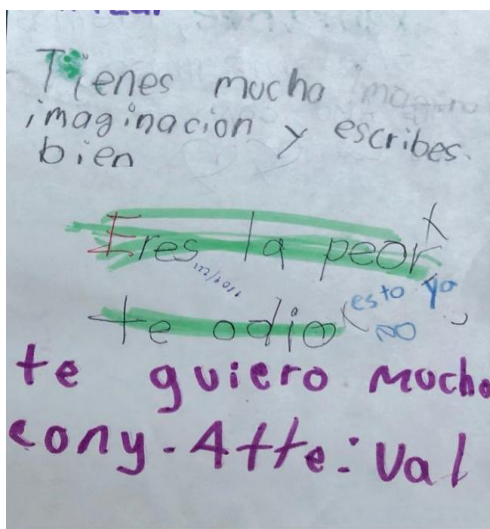 Tienes mucha
imaginacion y escribes
bien
Eres la peor x
te odio (esto ya
no )
te quiero mucho
cony-Atte: Val